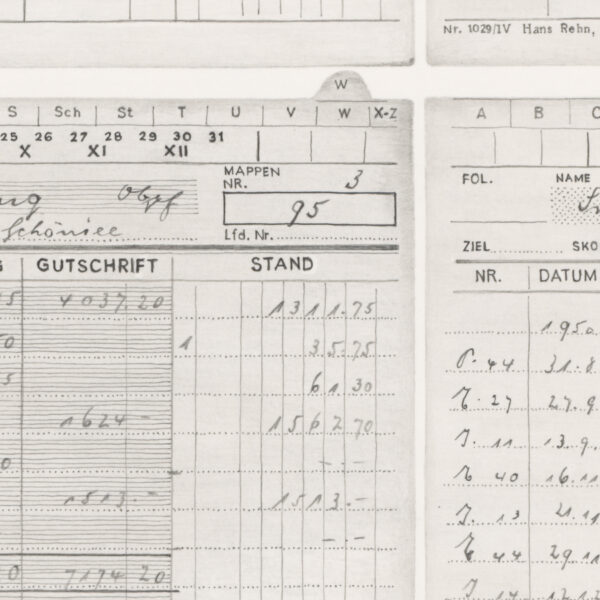 Nr. 1029/IV Hans Rehn,
W
S Sch St T U V W X-Z
25 26 27 28 29 30 31
X XI XII
MAPPEN
NR. 3
95
Lfd. Nr.
GUTSCHRIFT STAND
4037.20 1311.75
1 35.75
61 30
1624 - 1562 70
-.-
1513.- 1513.-
-.-
7174 20
A B C
FOL. NAME
ZIEL SKO
NR. DATUM
1950
44 31.8
27 27.9
J. 11 13.9.
40 16.11
J. 13 21.11
44 29.11